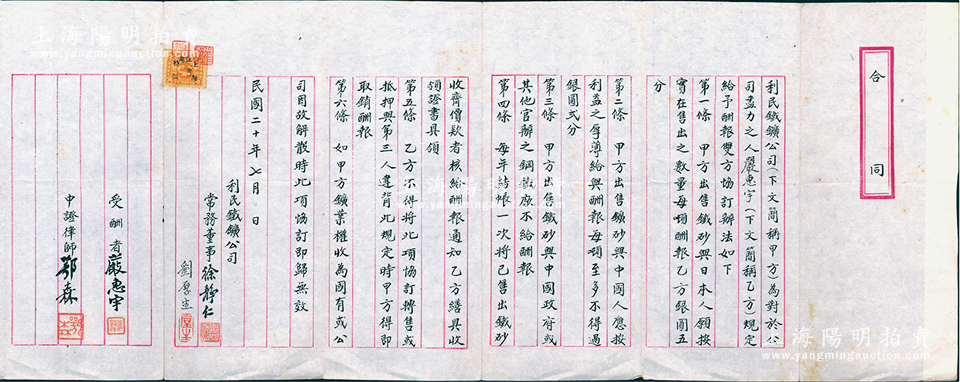 合同
利民鐵鑛公司(下文簡稱甲方)為對於公
司盡力之人嚴惠宇(下文簡稱乙方)規定
給予酬報雙方協訂辦法如下
第一條 甲方出售鐵砂與日本人願按
實在售出之數量每噸酬報乙方銀圓五
分
第二條 甲方出售鑛砂與中國人應按
利益之厚薄給與酬報每噸至多不得過
銀圓弍分
第三條 甲方出售鐵砂與中國政府或
其他官辦之鋼鐵廠不給酬報
第四條 每年結帳一次將已售出鐵砂
收齊價欵者核給酬報通知乙方繕具收
領證書具領
第五條 乙方不得將此項協訂轉售或
抵押與第三人違背此規定時甲方得即
取銷酬報
第六條 如甲方鑛業權收為國有或公
司因故解散時此項協訂即歸無效
民國二十年七月 日
利民鐵鑛公司
常務董事徐靜仁
劉厚生
受酬者嚴惠宇
中證律師鄂森
上海陽明拍賣
www.yangmingauction.com
上海陽明拍賣
www.yangmingauction.com